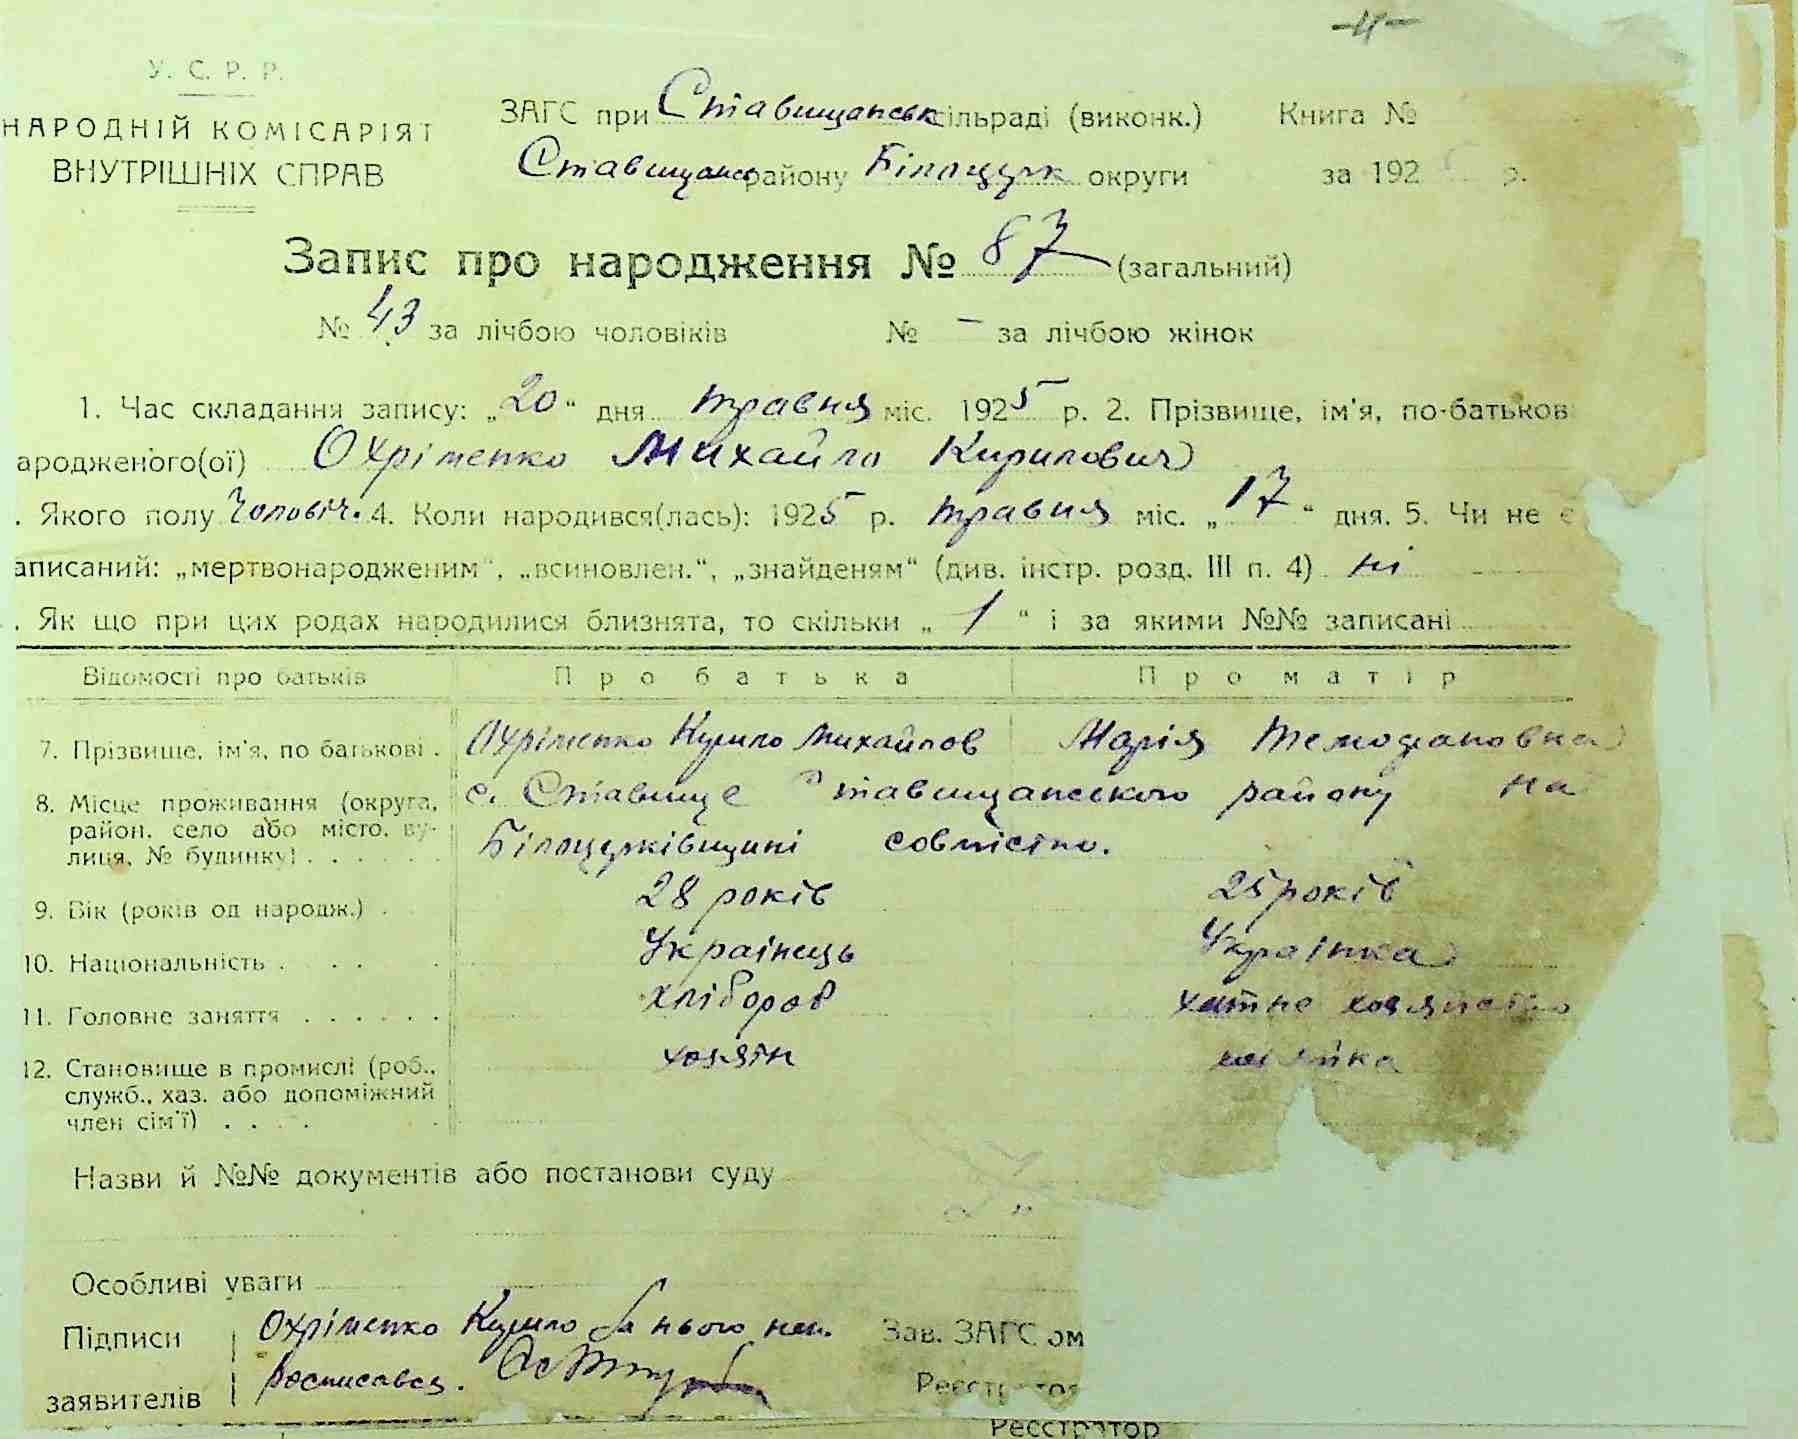 -4-
У. С. Р. Р.
НАРОДНІЙ КОМІСАРІЯТ
ВНУТРІШНІХ СПРАВ
ЗАГС при Ставищанськ сільраді (виконк.) Книга №
Ставищанс району Білоцерк округи за 192 р.
Запис про народження № 87 (загальний)
№ 43 за лічбою чоловіків № – за лічбою жінок
1. Час складання запису: „20“ дня травня міс. 1925 р. 2. Прізвище, ім'я, по-батьков
ародженого(ої) Охріменко Михайло Кирилович
. Якого полу Чоловіч. 4. Коли народився(лась): 1925 р. травня міс. „17“ дня. 5. Чи не є
аписаний: „мертвонародженим“, „всиновлен.“, „знайденям“ (див. інстр. розд. III п. 4) ні
. Як що при цих родах народилися близнята, то скільки „1“ і за якими №№ записані
Відомості про батьків Про батька Про матір
7. Прізвище, ім'я, по батькові . Охріменко Кирило Михайлов Марія
8. Місце проживання (округа, район, село або місто, ву-
лиця, № будинку) . . . . . .
с. Ставище Ставищанського району на
Білоцерківщині совмістно.
9. Вік (років од народж.) . 28 років 25 років
10. Національність . . . . Українець Українка
11. Головне заняття . . . . . . хлібороб хатне хозяйство
12. Становище в промислі (роб.,
служб., хаз. або допоміжний
член сім'ї) . . . .
хозяїн хозяйка
Назви й №№ документів або постанови суду
Особливі уваги
Підписи
заявителів
Охріменко Кирило за нього неп.
росписався.
Зав. ЗАГС'ом
Реєстратор
Реєстратор